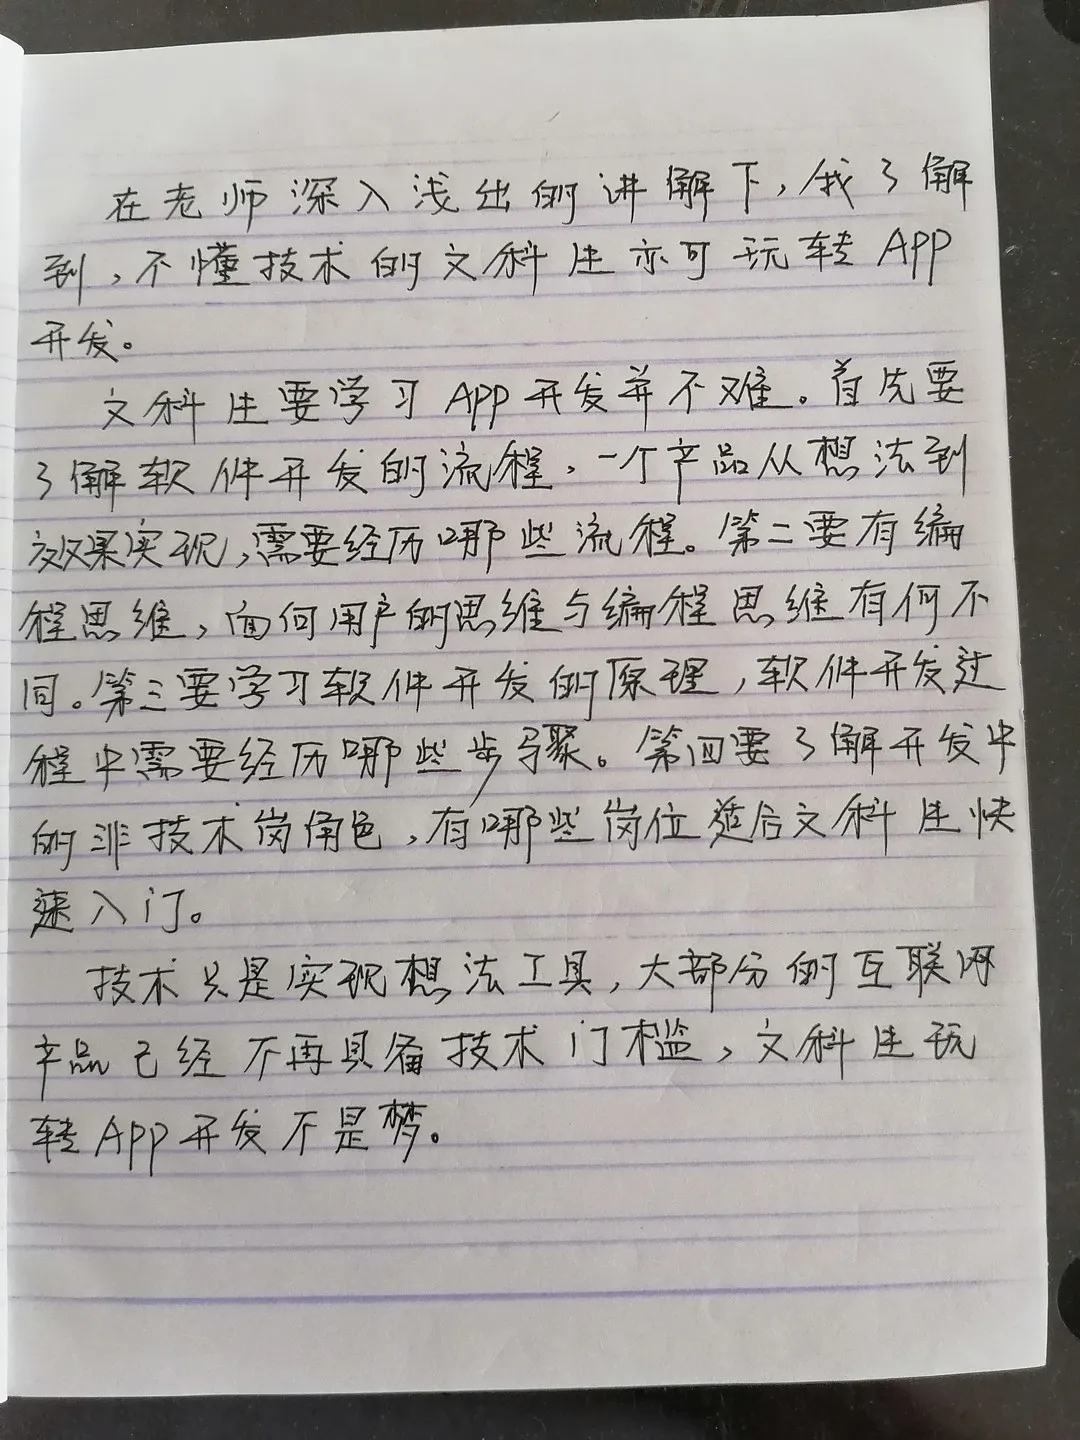 在老师深入浅出的讲解下,我了解
到,不懂技术的文科生亦可玩转APP
开发。
文科生要学习APP开发并不难。首先要
了解软件开发的流程,一个产品从想法到
效果实现,需要经历哪些流程。第二要有编
程思维,面向用户的思维与编程思维有何不
同。第三要学习软件开发的原理,软件开发过
程中需要经历哪些步骤。第四要了解开发中
的非技术岗角色,有哪些岗位适合文科生快
速入门。
技术只是实现想法工具,大部分的互联网
产品已经不再具备技术门槛,文科生玩
转APP开发不是梦。